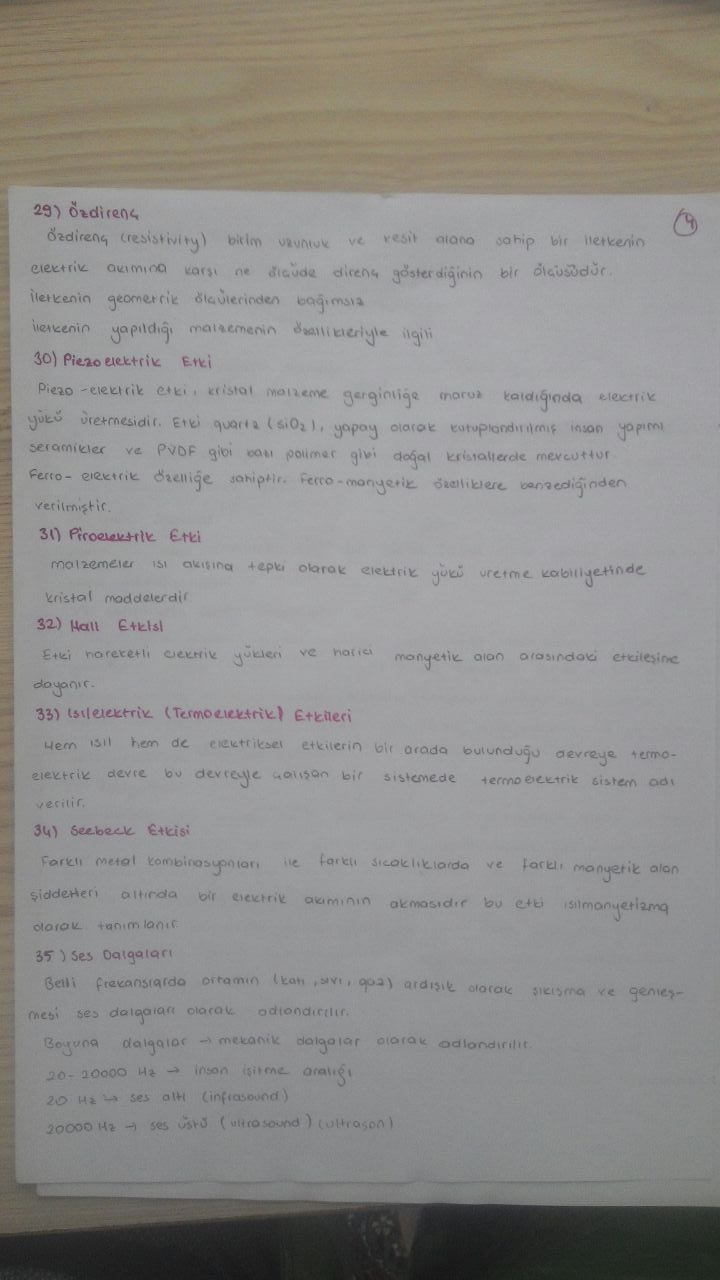 4
29) Özdirenç
Özdirenç (resistivity) birim uzunluk ve kesit alana sahip bir iletkenin
elektrik akımına karşı ne ölçüde direnç gösterdiğinin bir ölçüsüdür.
İletkenin geometrik ölçülerinden bağımsız
İletkenin yapıldığı malzemenin özellikleriyle ilgili
30) Piezoelektrik Etki
Piezo-elektrik etki, kristal malzeme gerginliğe maruz kaldığında elektrik
yükü üretmesidir. Etki quartz (SiO2), yapay olarak kutuplandırılmış insan yapımı
seramikler ve PVDF gibi bazı polimer gibi doğal kristallerde mevcuttur.
Ferro-elektrik özelliğe sahiptir. Ferro-manyetik özelliklere benzediğinden
verilmiştir.
31) Piroelektrik Etki
malzemeler ısı akışına tepki olarak elektrik yükü üretme kabiliyetinde
kristal maddelerdir
32) Hall Etkisi
Etki hareketli elektrik yükleri ve harici manyetik alan arasındaki etkileşime
dayanır.
33) Isılelektrik (Termoelektrik) Etkileri
Hem ısıl hem de elektriksel etkilerin bir arada bulunduğu devreye termo-
elektrik devre bu devreyle çalışan bir sistemede termoelektrik sistem adı
verilir.
34) Seebeck Etkisi
Farklı metal kombinasyonları ile farklı sıcaklıklarda ve farklı manyetik alan
şiddetleri altında bir elektrik akımının akmasıdır bu etki ısılmanyetizma
olarak tanımlanır
35) Ses Dalgaları
Belli frekanslarda ortamın (katı, sıvı, gaz) ardışık olarak sıkışma ve genleş-
mesi ses dalgaları olarak adlandırılır.
Boyuna dalgalar → mekanik dalgalar olarak adlandırılır.
20-20000 Hz → insan işitme aralığı
20 Hz → ses altı (infrasound)
20000 Hz → ses üstü (ultrasound) (ultrason)